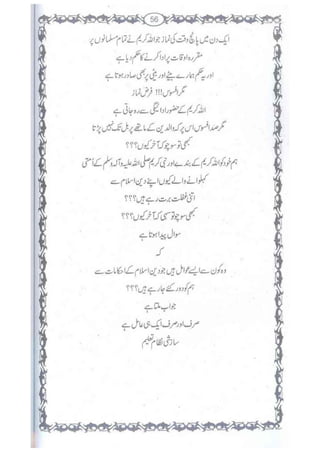 56
ایک دن میں پانچ وقت کی نماز جو اللہ کریم نے تمام مسلمانوں پر
مقررہ اوقات پر ادا کرنے کا حکم دیا ہے
اور یہ حکم ہمارے بیٹے اور بیٹی پر بھی صادر ہوتا ہے
مگر افسوس!!! فرض نماز
اللہ کریم کے حضور ادائیگی سے رہ جاتی ہے
مگر صد افسوس اس پر کہ والدین کے ماتھے پر بل تک نہیں پڑتا
کبھی تو سوچو کہ آخر کیوں؟؟؟
ہم خود کو اللہ کریم کے بندے اور نبی کریم صلی اللہ علیہ وآلہ وسلم کے اُمتی
کہلوانے والے کیوں اپنے دین اسلام سے
اتنی غفلت برت رہے ہیں؟؟؟
کبھی سوچو تو سہی کہ آخر کیوں؟؟؟
سوال پیدا ہوتا ہے
کہ
وہ کون سے ایسے عوامل ہیں جو دین اسلام کے احکامات سے
ہم کو دور کئے جا رہے ہیں؟؟؟
جواب ملتا ہے
صرف اور صرف ایک ہی عامل ہے
سازشی نظام تعلیم